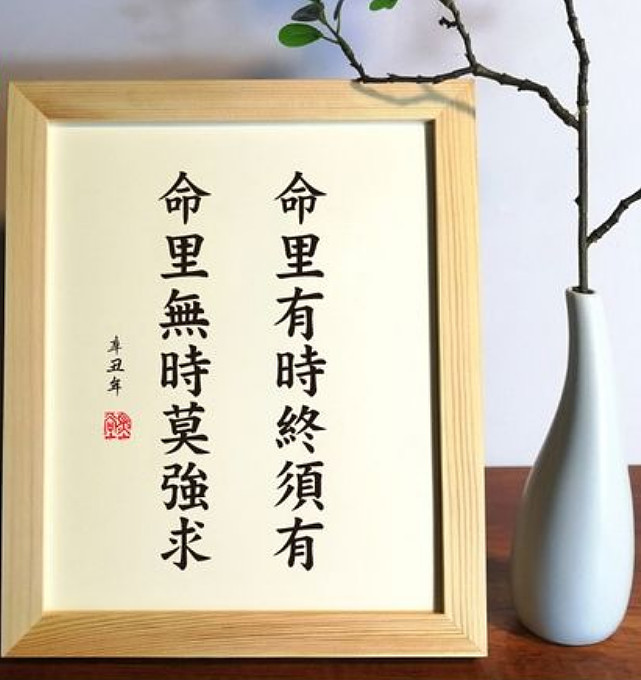 命里有時終須有
命里無時莫強求
辛丑年